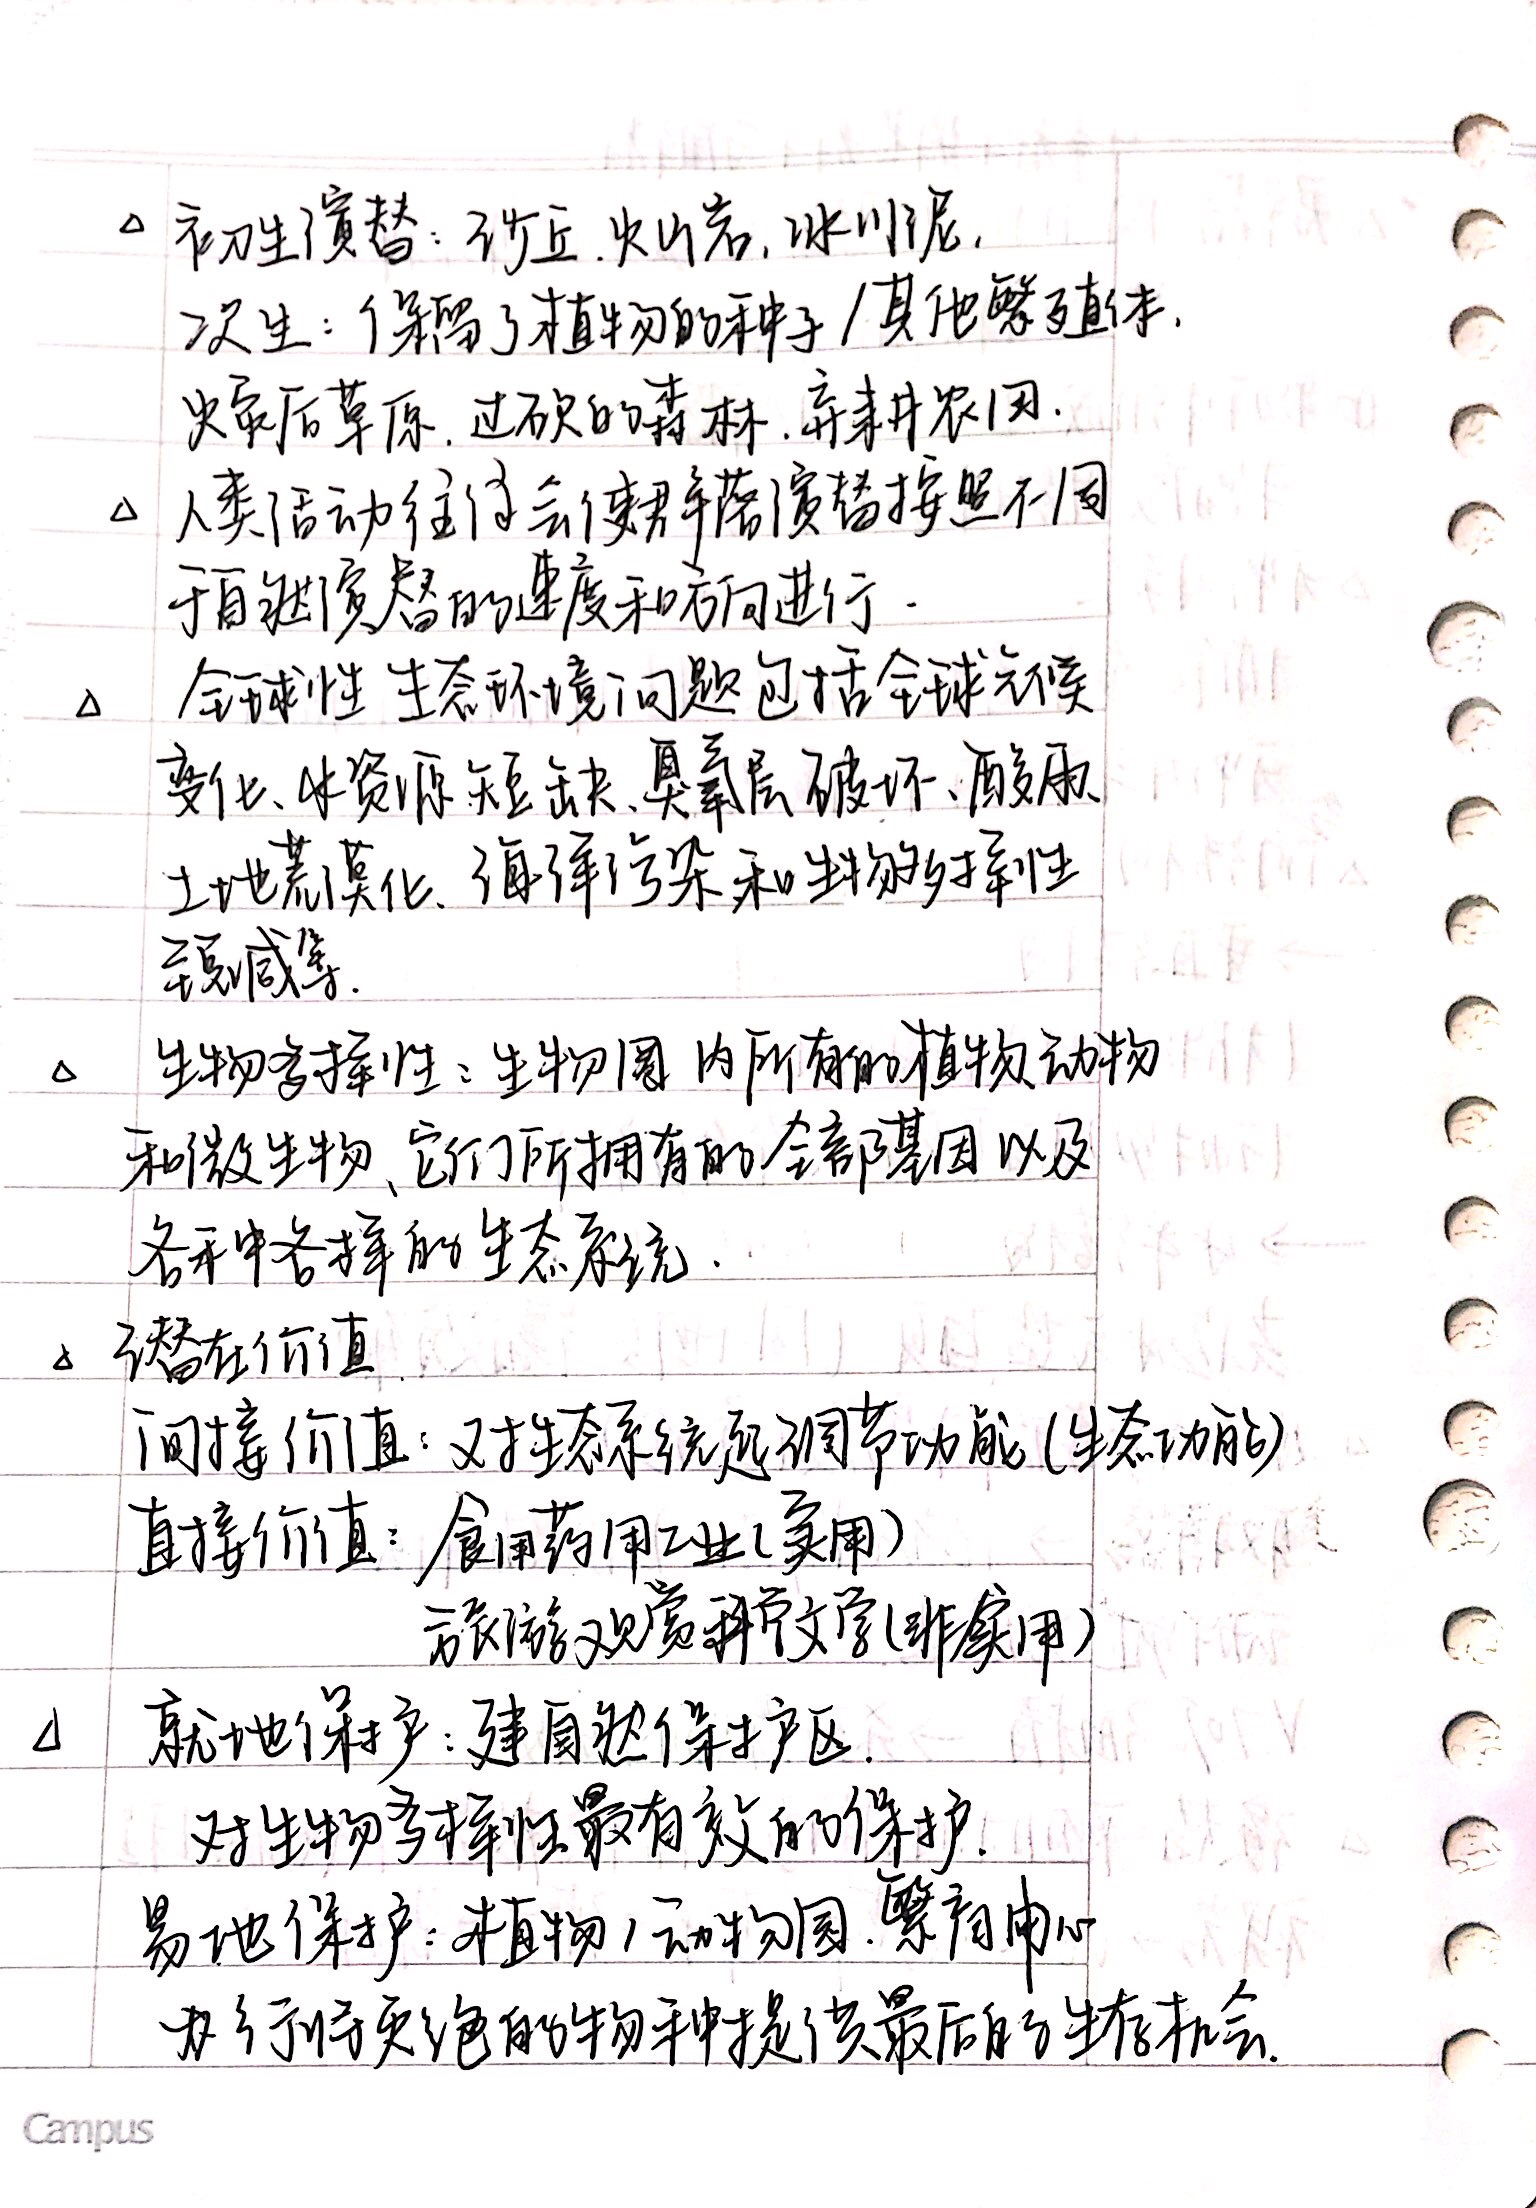 △ 初生演替：沙丘、火山岩，冰川泥，
次生：保留了植物的种子/其他繁殖体，
火灾后草原、过砍的森林、弃耕农田．
△ 人类活动往往会使群落演替按照不同
于自然演替的速度和方向进行．
△ 全球性生态环境问题包括全球气候
变化、水资源短缺、臭氧层破坏、酸雨、
土地荒漠化、海洋污染和生物多样性
锐减等．
△ 生物多样性：生物圈内所有的植物、动物
和微生物、它们所拥有的全部基因以及
各种各样的生态系统．
△ 潜在价值．
间接价值：对生态系统起调节功能(生态功能)
直接价值：食用药用工业(实用)
旅游观赏科学文学(非实用)
△ 就地保护：建自然保护区．
对生物多样性最有效的保护．
易地保护：植物/动物园．繁育中心
为行将灭绝的物种提供最后的生存机会．
Campus